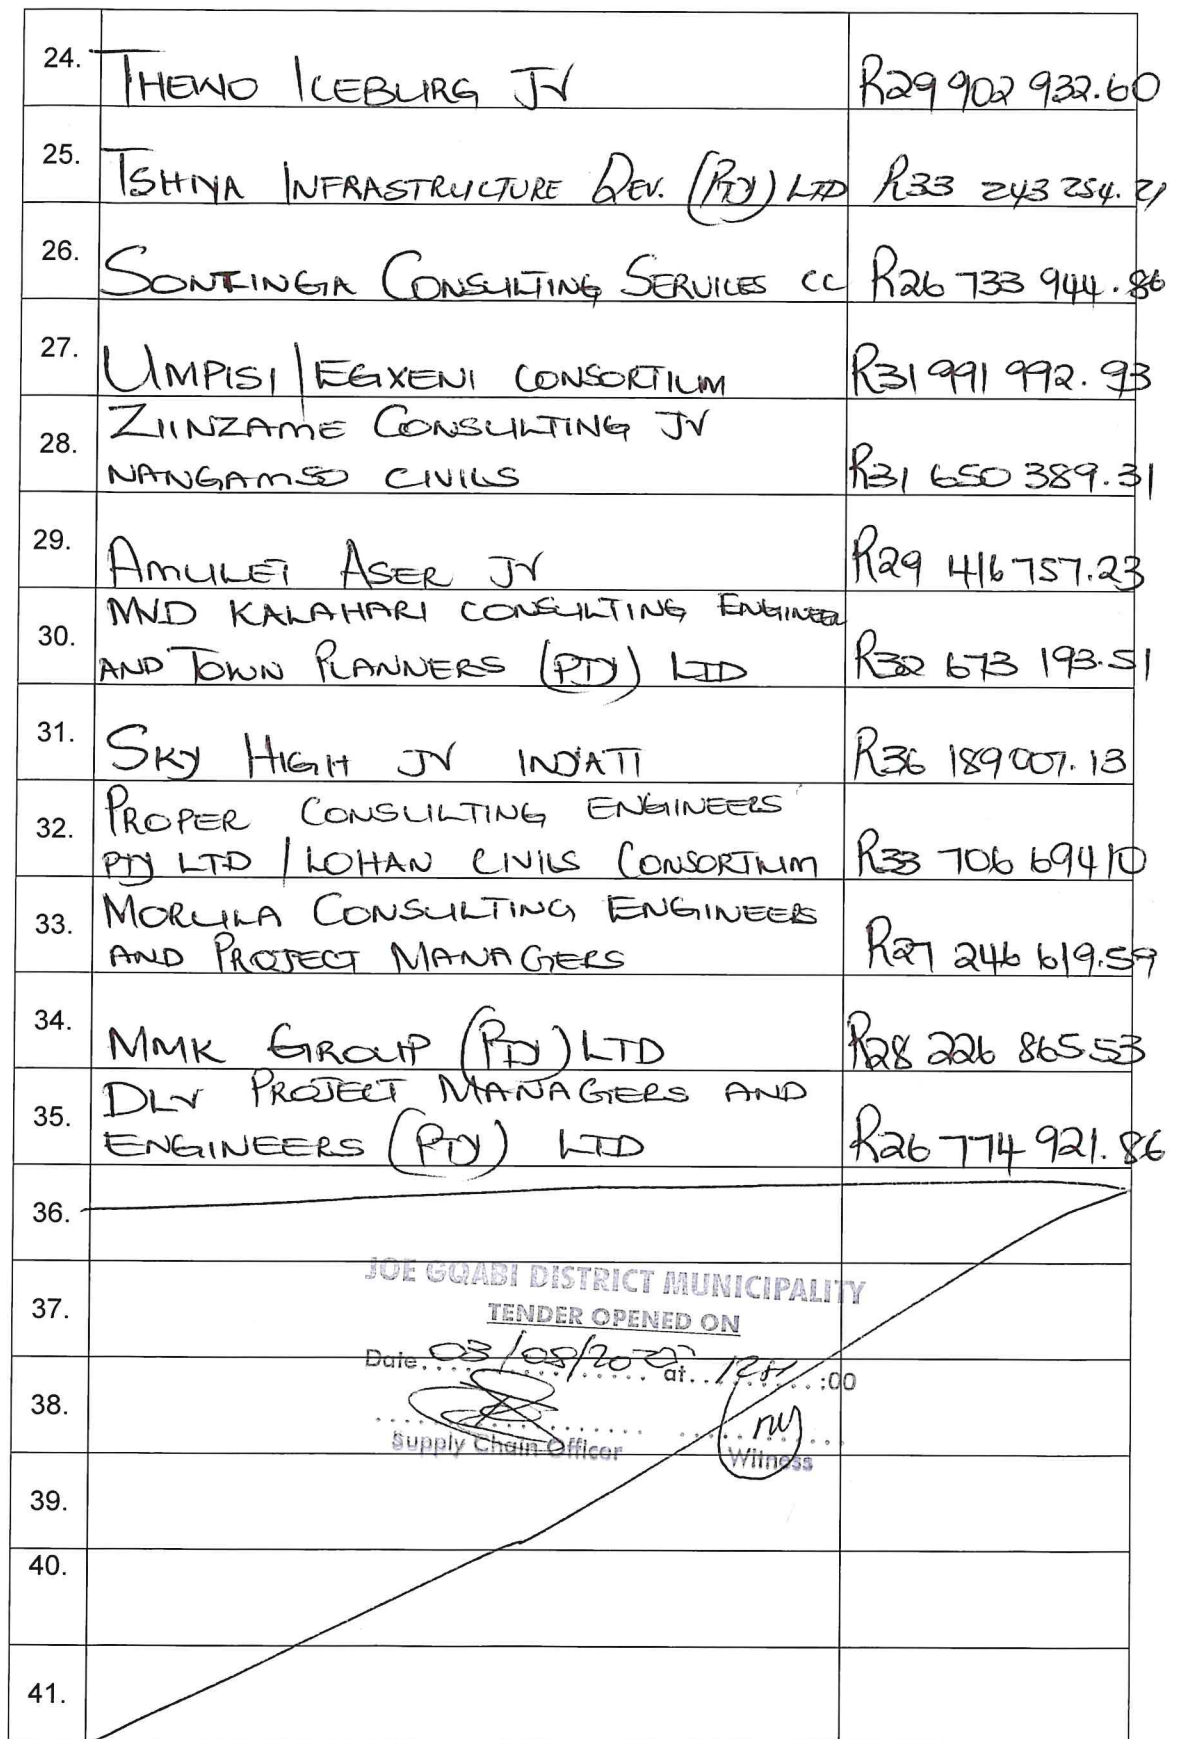 24. THEWO ICEBURG JV R29 902 932.60
25. TSHIYA INFRASTRUCTURE DEV. (PTY) LTD R33 243 254.21
26. SONTINGA CONSULTING SERVICES CC R26 733 944.86
27. UMPISI / EGXENI CONSORTIUM R31 991 992.93
28. ZIINZAME CONSULTING JV
NANGAMSO CIVILS R31 650 389.31
29. AMULET ASER JV R29 416 757.23
30. MVD KALAHARI CONSULTING ENGINEER
AND TOWN PLANNERS (PTY) LTD R32 673 193.51
31. SKY HIGH JV INYATI R36 189 007.13
32. PROPER CONSULTING ENGINEERS
PTY LTD / LOHAN CIVILS CONSORTIUM R33 706 694 10
33. MORULA CONSULTING ENGINEERS
AND PROJECT MANAGERS R27 246 619.59
34. MMK GROUP (PTY) LTD R28 226 865.53
35. DLV PROJECT MANAGERS AND
ENGINEERS (PTY) LTD R26 774 921.86
36.
JOE GQABI DISTRICT MUNICIPALITY
37. TENDER OPENED ON
Date 03/08/2022 at 12H :00
38.
Supply Chain Officer Witness
39.
40.
41.